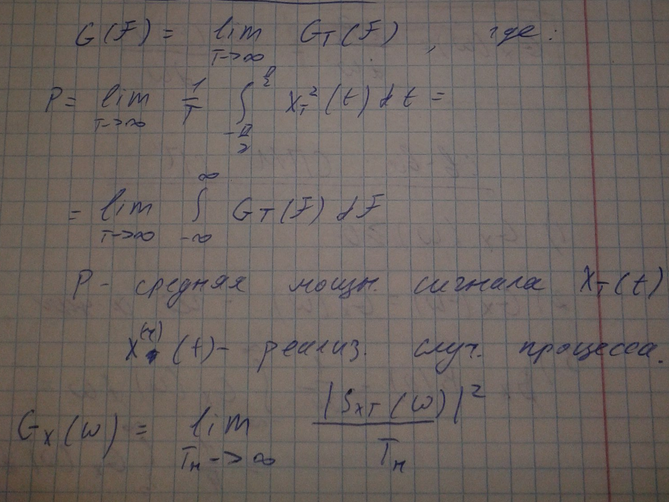 G(F) = lim T->∞ G_T(F), где:
P = lim T->∞ 1/T ∫ -π/2 π/2 X_T²(t) dt =
= lim T->∞ ∫ -∞ ∞ G_T(F) dF
P - средняя мощн. сигнала X_T(t)
X^(r)(t) - реализ. случ. процесса.
G_x(ω) = lim T_н->∞ |S_xT(ω)|² / T_н